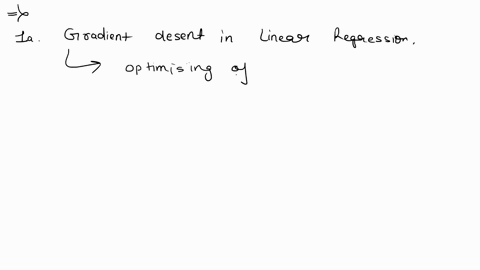 =>
1a. Gradient desent in Linear Regression.
optimising of